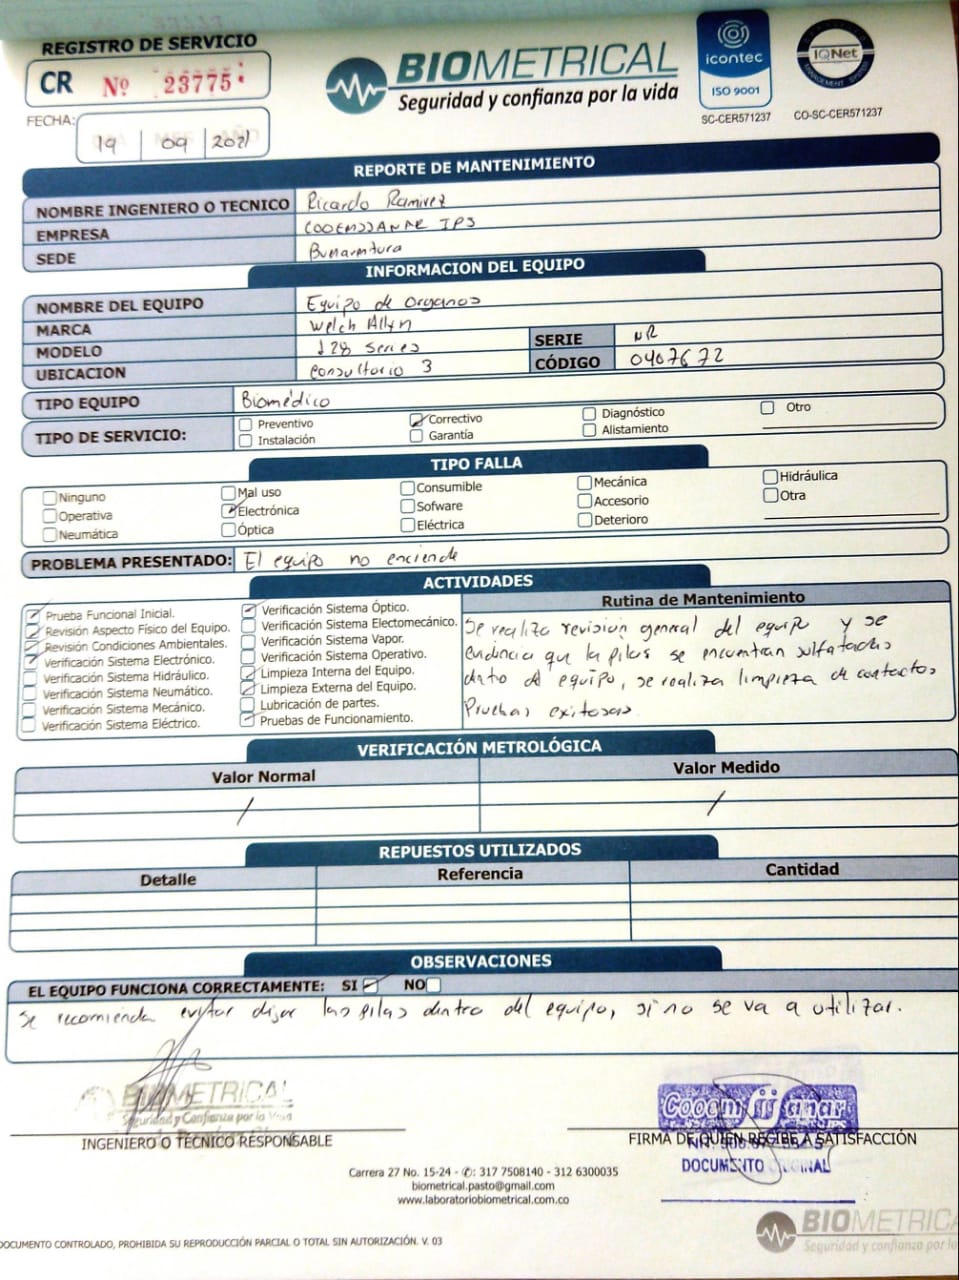 REGISTRO DE SERVICIO
CR Nº 23775
BIOMETRICAL
Seguridad y confianza por la vida
icontec
ISO 9001
SC-CER571237
IQNet
MANAGEMENT SYSTEM
CO-SC-CER571237
FECHA: 19 09 2021
REPORTE DE MANTENIMIENTO
NOMBRE INGENIERO O TECNICO Ricardo Ramirez
EMPRESA COOEMSSANAR IPS
SEDE Buenaventura
INFORMACION DEL EQUIPO
NOMBRE DEL EQUIPO Equipo de Organos
MARCA Welch Allyn
MODELO 128 series
SERIE NR
UBICACION Consultorio 3
CÓDIGO 0407672
TIPO EQUIPO Biomédico
TIPO DE SERVICIO:
Preventivo Correctivo Diagnóstico Otro
Instalación Garantía Alistamiento
TIPO FALLA
Ninguno Mal uso Consumible Mecánica Hidráulica
Operativa Electrónica Sofware Accesorio Otra
Neumática Óptica Eléctrica Deterioro
PROBLEMA PRESENTADO: El equipo no enciende
ACTIVIDADES
Prueba Funcional Inicial.
Revisión Aspecto Físico del Equipo.
Revisión Condiciones Ambientales.
Verificación Sistema Electrónico.
Verificación Sistema Hidráulico.
Verificación Sistema Neumático.
Verificación Sistema Mecánico.
Verificación Sistema Eléctrico.
Verificación Sistema Óptico.
Verificación Sistema Electomecánico.
Verificación Sistema Vapor.
Verificación Sistema Operativo.
Limpieza Interna del Equipo.
Limpieza Externa del Equipo.
Lubricación de partes.
Pruebas de Funcionamiento.
Rutina de Mantenimiento
Se realiza revisión general del equipo y se
evidencia que las pilas se encuentran sulfatadas
dntro del equipo, se realiza limpieza de contactos
Pruebas exitosas
VERIFICACIÓN METROLÓGICA
Valor Normal Valor Medido
/ /
REPUESTOS UTILIZADOS
Detalle Referencia Cantidad
OBSERVACIONES
EL EQUIPO FUNCIONA CORRECTAMENTE: SI NO
Se recomienda evitar dejar las pilas dentro del equipo, si no se va a utilizar.
BIOMETRICAL
Seguridad y Confianza por la Vida
INGENIERO O TECNICO RESPONSABLE
FIRMA DE QUIEN RECIBE A SATISFACCIÓN
DOCUMENTO ORIGINAL
Carrera 27 No. 15-24 - ✆: 317 7508140 - 312 6300035
biometrical.pasto@gmail.com
www.laboratoriobiometrical.com.co
BIOMETRICA
Seguridad y confianza por la
DOCUMENTO CONTROLADO, PROHIBIDA SU REPRODUCCIÓN PARCIAL O TOTAL SIN AUTORIZACIÓN. V. 03